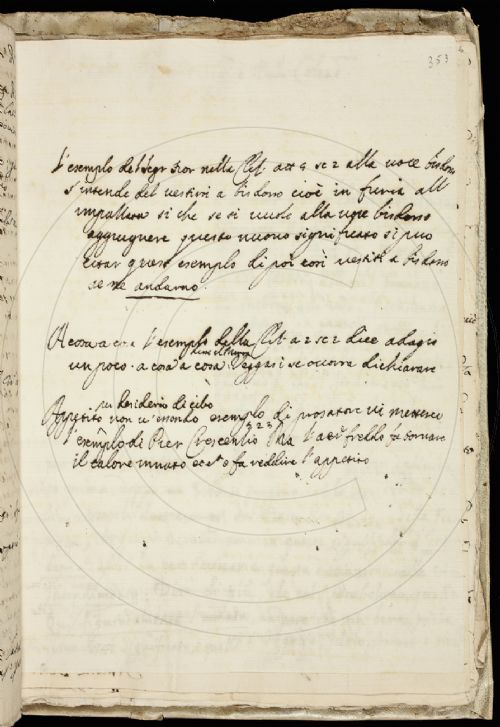 353
L'esempio del Segr fior nella Clit att 4 sc 2 alla voce bisdosso
s'intende del vestirsi a bisdosso cioè in furia all
impazzata si che se si vuole alla voce bisdosso
aggiugnere questo nuovo significato si può
citar questo esempio di poi così vestiti a bisdosso
se ne andarno.
A cosa a cosa l'esempio della Clit a 2 sc 2 dice adagio
un poco a cosa a cosa Veggasi se occorre dichiarare
per desiderio di cibo
Appetito non v'essendo esempio di prosatore vi mettesse
l'esempio di Pier Crescenzio 3 23 Ma l'aer freddo fa tornare
il calore innato e fa reddire l'appetito